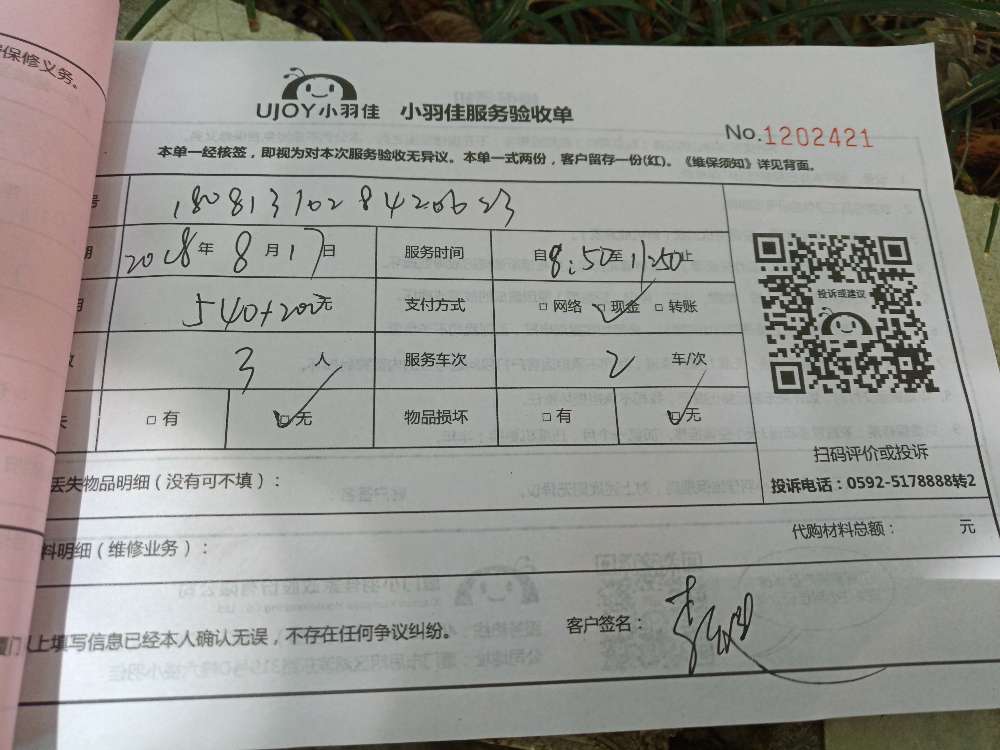 保修义务。
UJOY小羽佳 小羽佳服务验收单
No.1202421
本单一经核签，即视为对本次服务验收无异议。本单一式两份，客户留存一份(红)。《维保须知》详见背面。
号 1808131028420623
期 2018年8月17日 服务时间 自8:50至11:50止
用 540+200元 支付方式 □ 网络 □ 现金 □ 转账
数 3 人 服务车次 2 车/次
失 □ 有 □ 无 物品损坏 □ 有 □ 无
投诉或建议
扫码评价或投诉
投诉电话：0592-5178888转2
丢失物品明细（没有可不填）：
代购材料总额： 元
料明细（维修业务）：
以上填写信息已经本人确认无误，不存在任何争议纠纷。 客户签名：